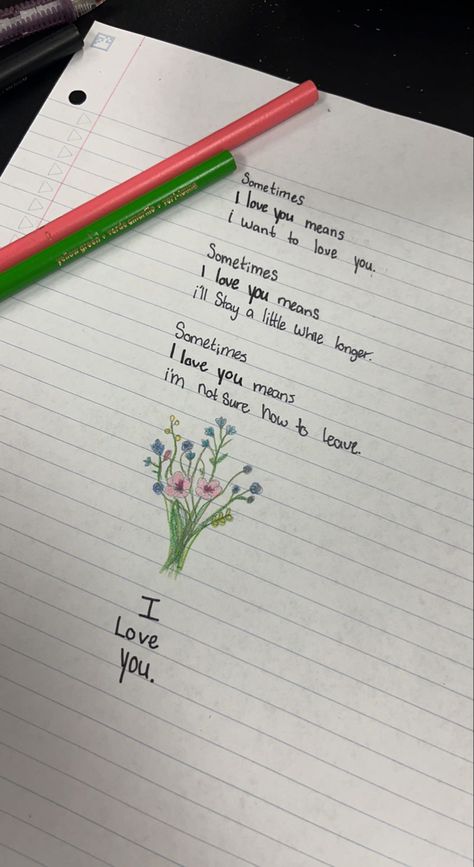 yellow green • verde amarillo • vert jaune
Sometimes
I love you means
i want to love you.
Sometimes
I love you means
i'll Stay a little while longer.
Sometimes
I love you means
i'm not sure how to leave.
I
Love
you.